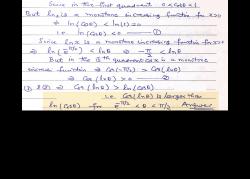 Since in the first quadrant 0<cosθ<1
But ln x is a monotone increasing function for x>0
⇒ ln(cosθ) < ln(1) = 0
⇒ ln(cosθ) < 0 —— ①
Since ln x is a monotone increasing function for x>0
⇒ ln(e^(-π/2)) < lnθ ⇒ -π/2 < lnθ
But in the 4th quadrant cos x is a monotone
increase function ⇒ cos(-π/2) > cos(lnθ)
⇒ cos(lnθ) > 0 —— ②
① & ② ⇒ cos(lnθ) > ln(cosθ)
i.e. cos(lnθ) is larger than
ln(cosθ) for e^(-π/2) < θ < π/2 Answer